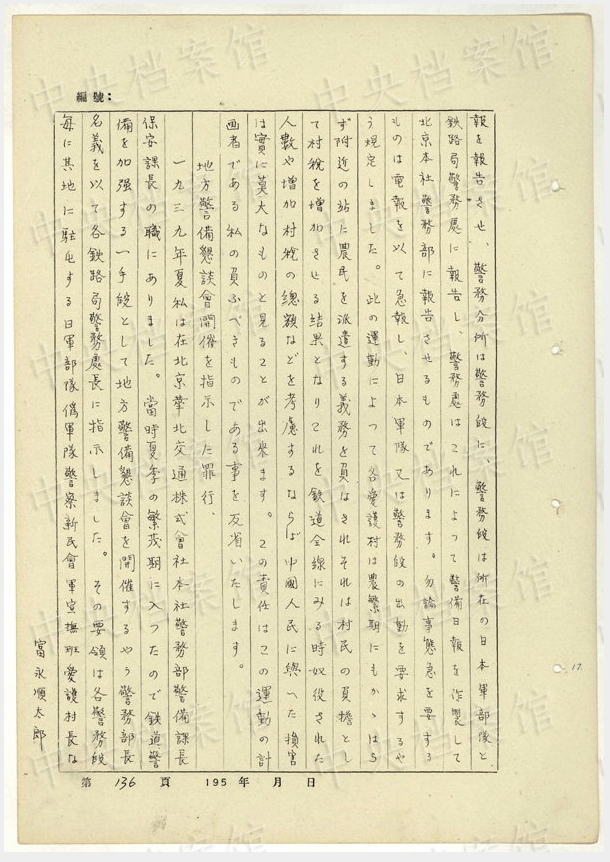 編號：
報を報告させ、警務分所は警務段に、警務段は所在の日本軍部隊と
鉄路局警務處に報告し、警務處はこれによつて警備日報を作製して
北京本社警務部に報告させるものであります。勿論事態急を要する
ものは電報を以て急報し、日本軍隊又は警務段の出動を要求するや
う規定しました。此の運動によつて各愛護村は農繁期にもかゝはら
ず附近の站に農民を派遣する義務を負はされそれは村民の負擔とし
て村税を増加させる結果となりこれを鉄道全線にみる時奴役された
人数や増加村税の総額などを考慮するならば中國人民に與へた損害
は實に莫大なものと見ることが出来ます。この責任はこの運動の計
画者である私の負ふべきものである事を反省いたします。
地方警備懇談會開催を指示した罪行、
一九三九年夏私は在北京華北交通株式會社本社警務部警備課長
保安課長の職にありました。當時夏季の繁茂期に入つたので鉄道警
備を加强する一手段として地方警備懇談會を開催するやう警務部長
名義を以て各鉄路局警務處長に指示しました。その要領は各警務段
毎に其地に駐屯する日軍部隊僞軍隊警察新民會軍宣撫班愛護村長な
富永順太郎
17.
第 136 頁 195 年 月 日
中央档案馆